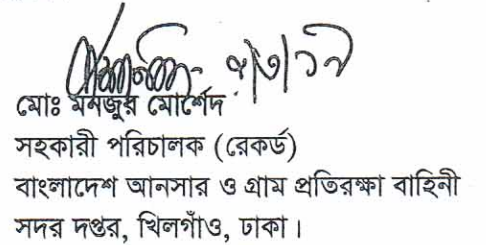 ৭/৩/১৭
মোঃ মনজুর মোর্শেদ
সহকারী পরিচালক (রেকর্ড)
বাংলাদেশ আনসার ও গ্রাম প্রতিরক্ষা বাহিনী
সদর দপ্তর, খিলগাঁও, ঢাকা।